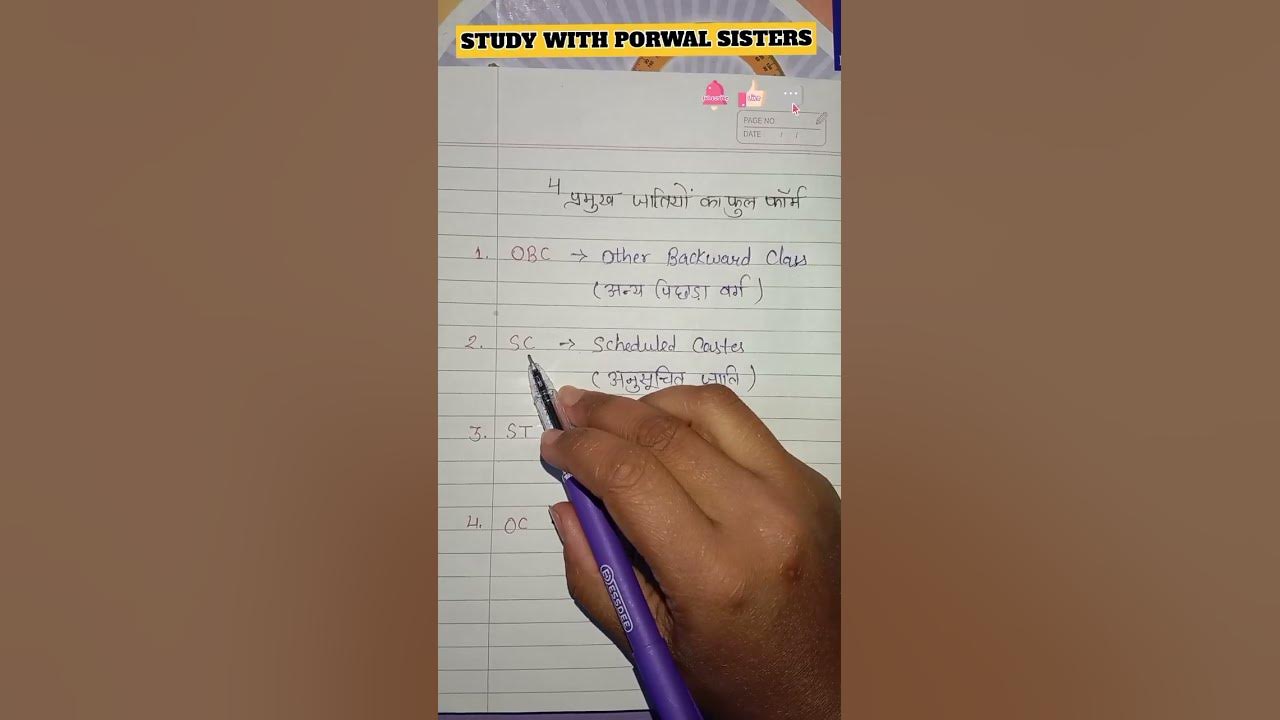 STUDY WITH PORWAL SISTERS
PAGE NO
DATE / /
4 प्रमुख जातियों का फुल फॉर्म
1. OBC → Other Backward Class
(अन्य पिछड़ा वर्ग)
2. SC → Scheduled Castes
(अनुसूचित जाति)
3. ST
4. OC
ESSDEE